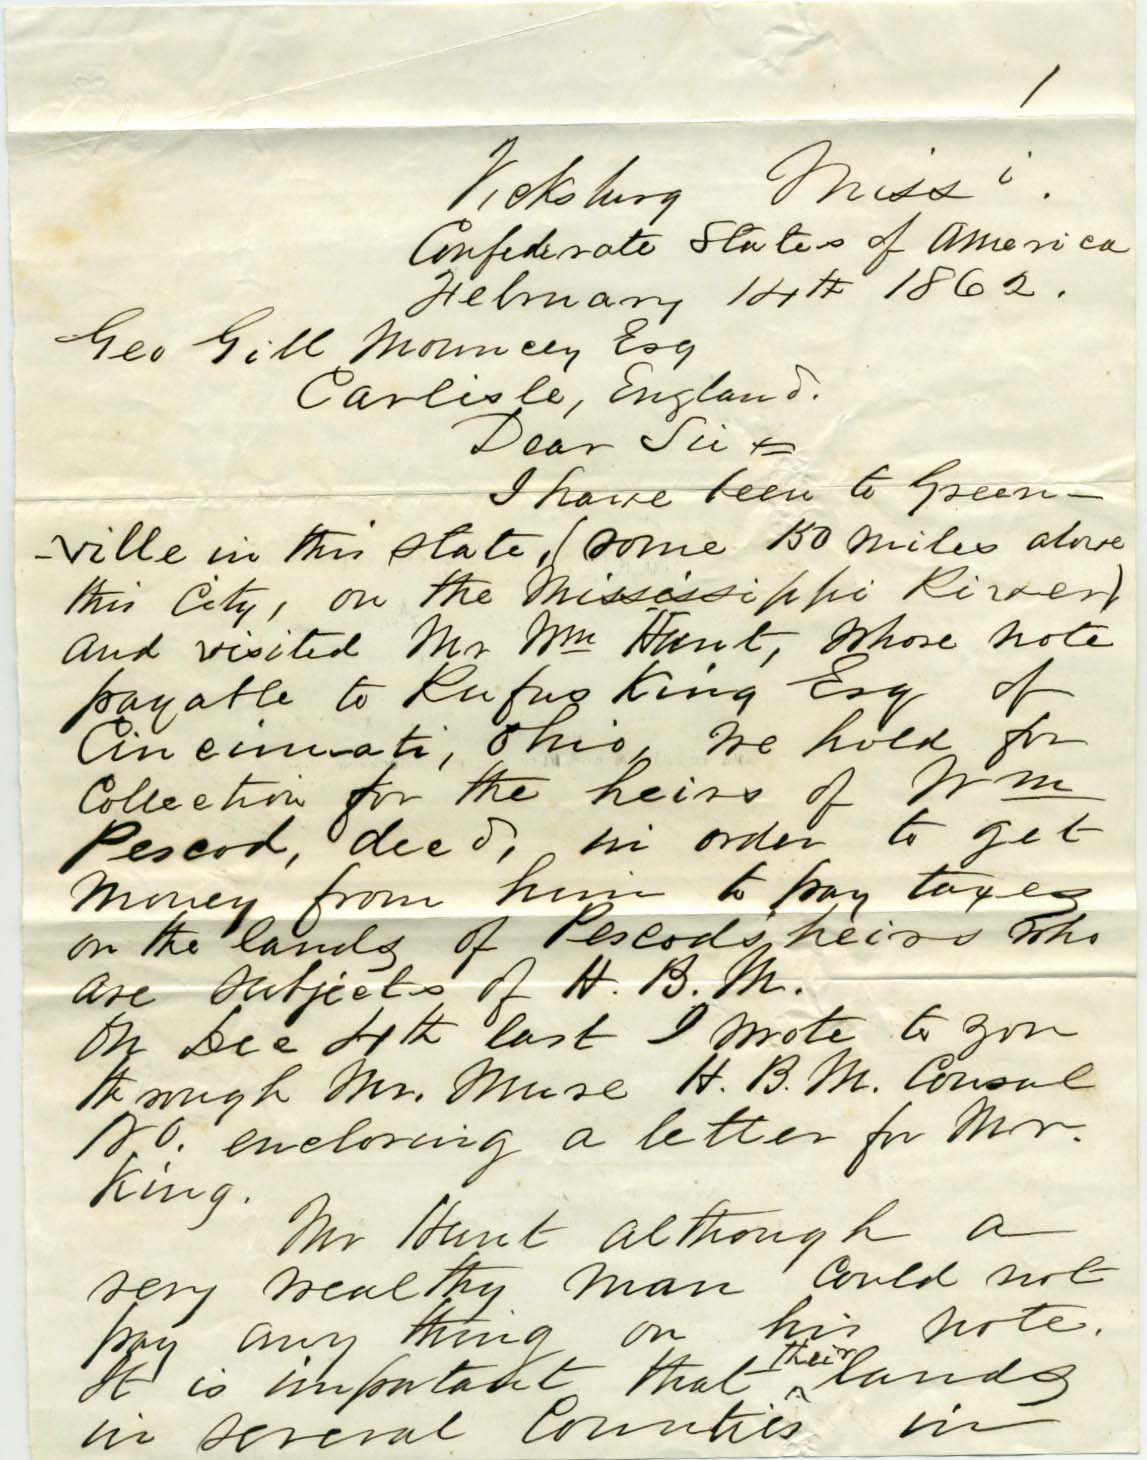 1
Vicksburg Missi.
Confederate States of America
February 14th 1862.
Geo Gill Mouncey Esq
Carlisle, England.
Dear Sir
I have been to Green-
-ville in this state, (some 150 miles above
this City, on the Mississippi River)
and visited Mr Wm Hunt, whose note
payable to Rufus King Esq of
Cincinnati, Ohio, we hold for
Collection for the heirs of Wm
Pescod, decd, in order to get
money from him to pay taxes
on the lands of Pescods heirs who
are subjects of H. B. M.
On Dec 4th last I wrote to you
through Mr. Mure H. B. M. Consul
N.O. enclosing a letter for Mr.
King.
Mr Hunt although a
very wealthy man could not
pay any thing on his note.
It is important that their lands
in several Counties in